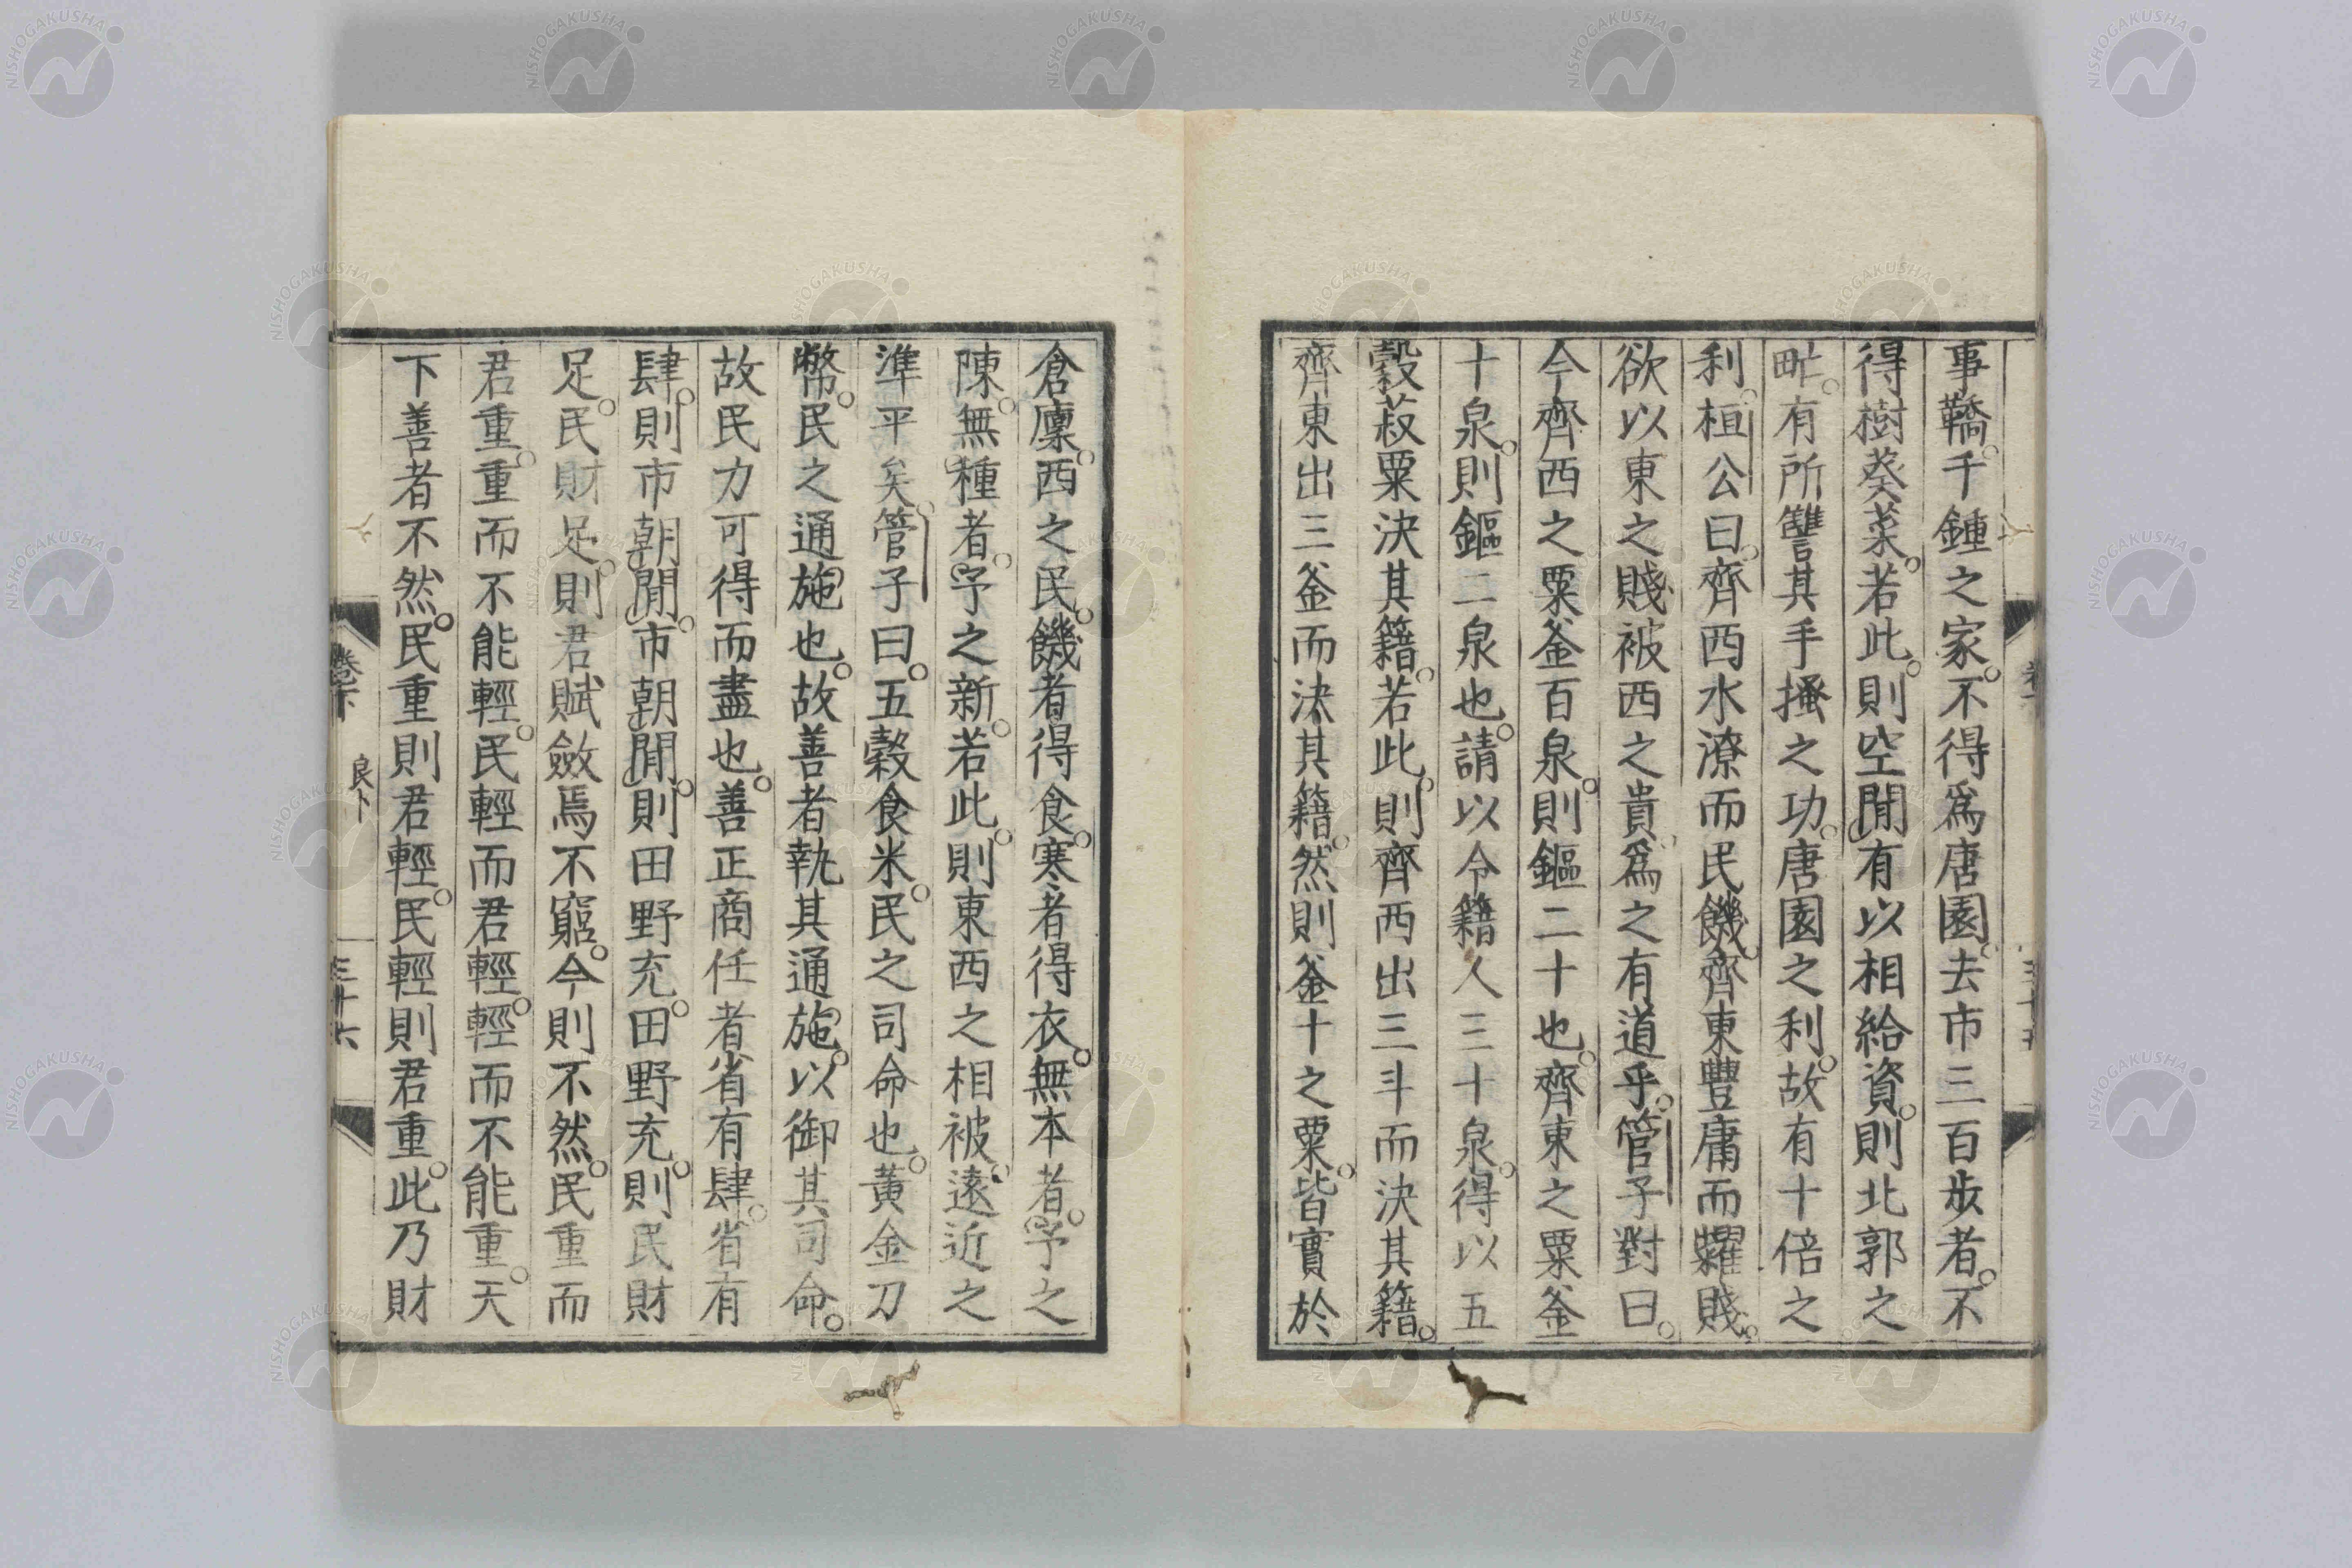 事鞽。千鍾之家。不得爲唐園。去市三百步者。不
得樹葵菜。若此。則空閒有以相給資。則北郭之
甿。有所讐其手搔之功。唐園之利。故有十倍之
利。桓公曰。齊西水潦而民饑。齊東豐庸而糶賤。
欲以東之賤。被西之貴。爲之有道乎。管子對曰。
今齊西之粟釜百泉。則鏂二十也。齊東之粟釜
十泉。則鏂二泉也。請以令籍人三十泉。得以五
穀菽粟決其籍。若此。則齊西出三斗而決其籍。
齊東出三釜而決其籍。然則釜十之粟。皆實於
倉廩。西之民。饑者得食。寒者得衣。無本者。予之
陳。無種者。予之新。若此。則東西之相被。遠近之
準平矣。管子曰。五穀食米。民之司命也。黃金刀
幣。民之通施也。故善者執其通施。以御其司命。
故民力可得而盡也。善正商任者省有肆。省有
肆。則市朝閒。市朝閒。則田野充。田野充。則民財
足。民財足。則君賦斂焉不窮。今則不然。民重而
君重。重而不能輕。民輕而君輕。輕而不能重。天
下善者不然。民重則君輕。民輕則君重。此乃財
卷下
三十六
NISHOGAKUSHA